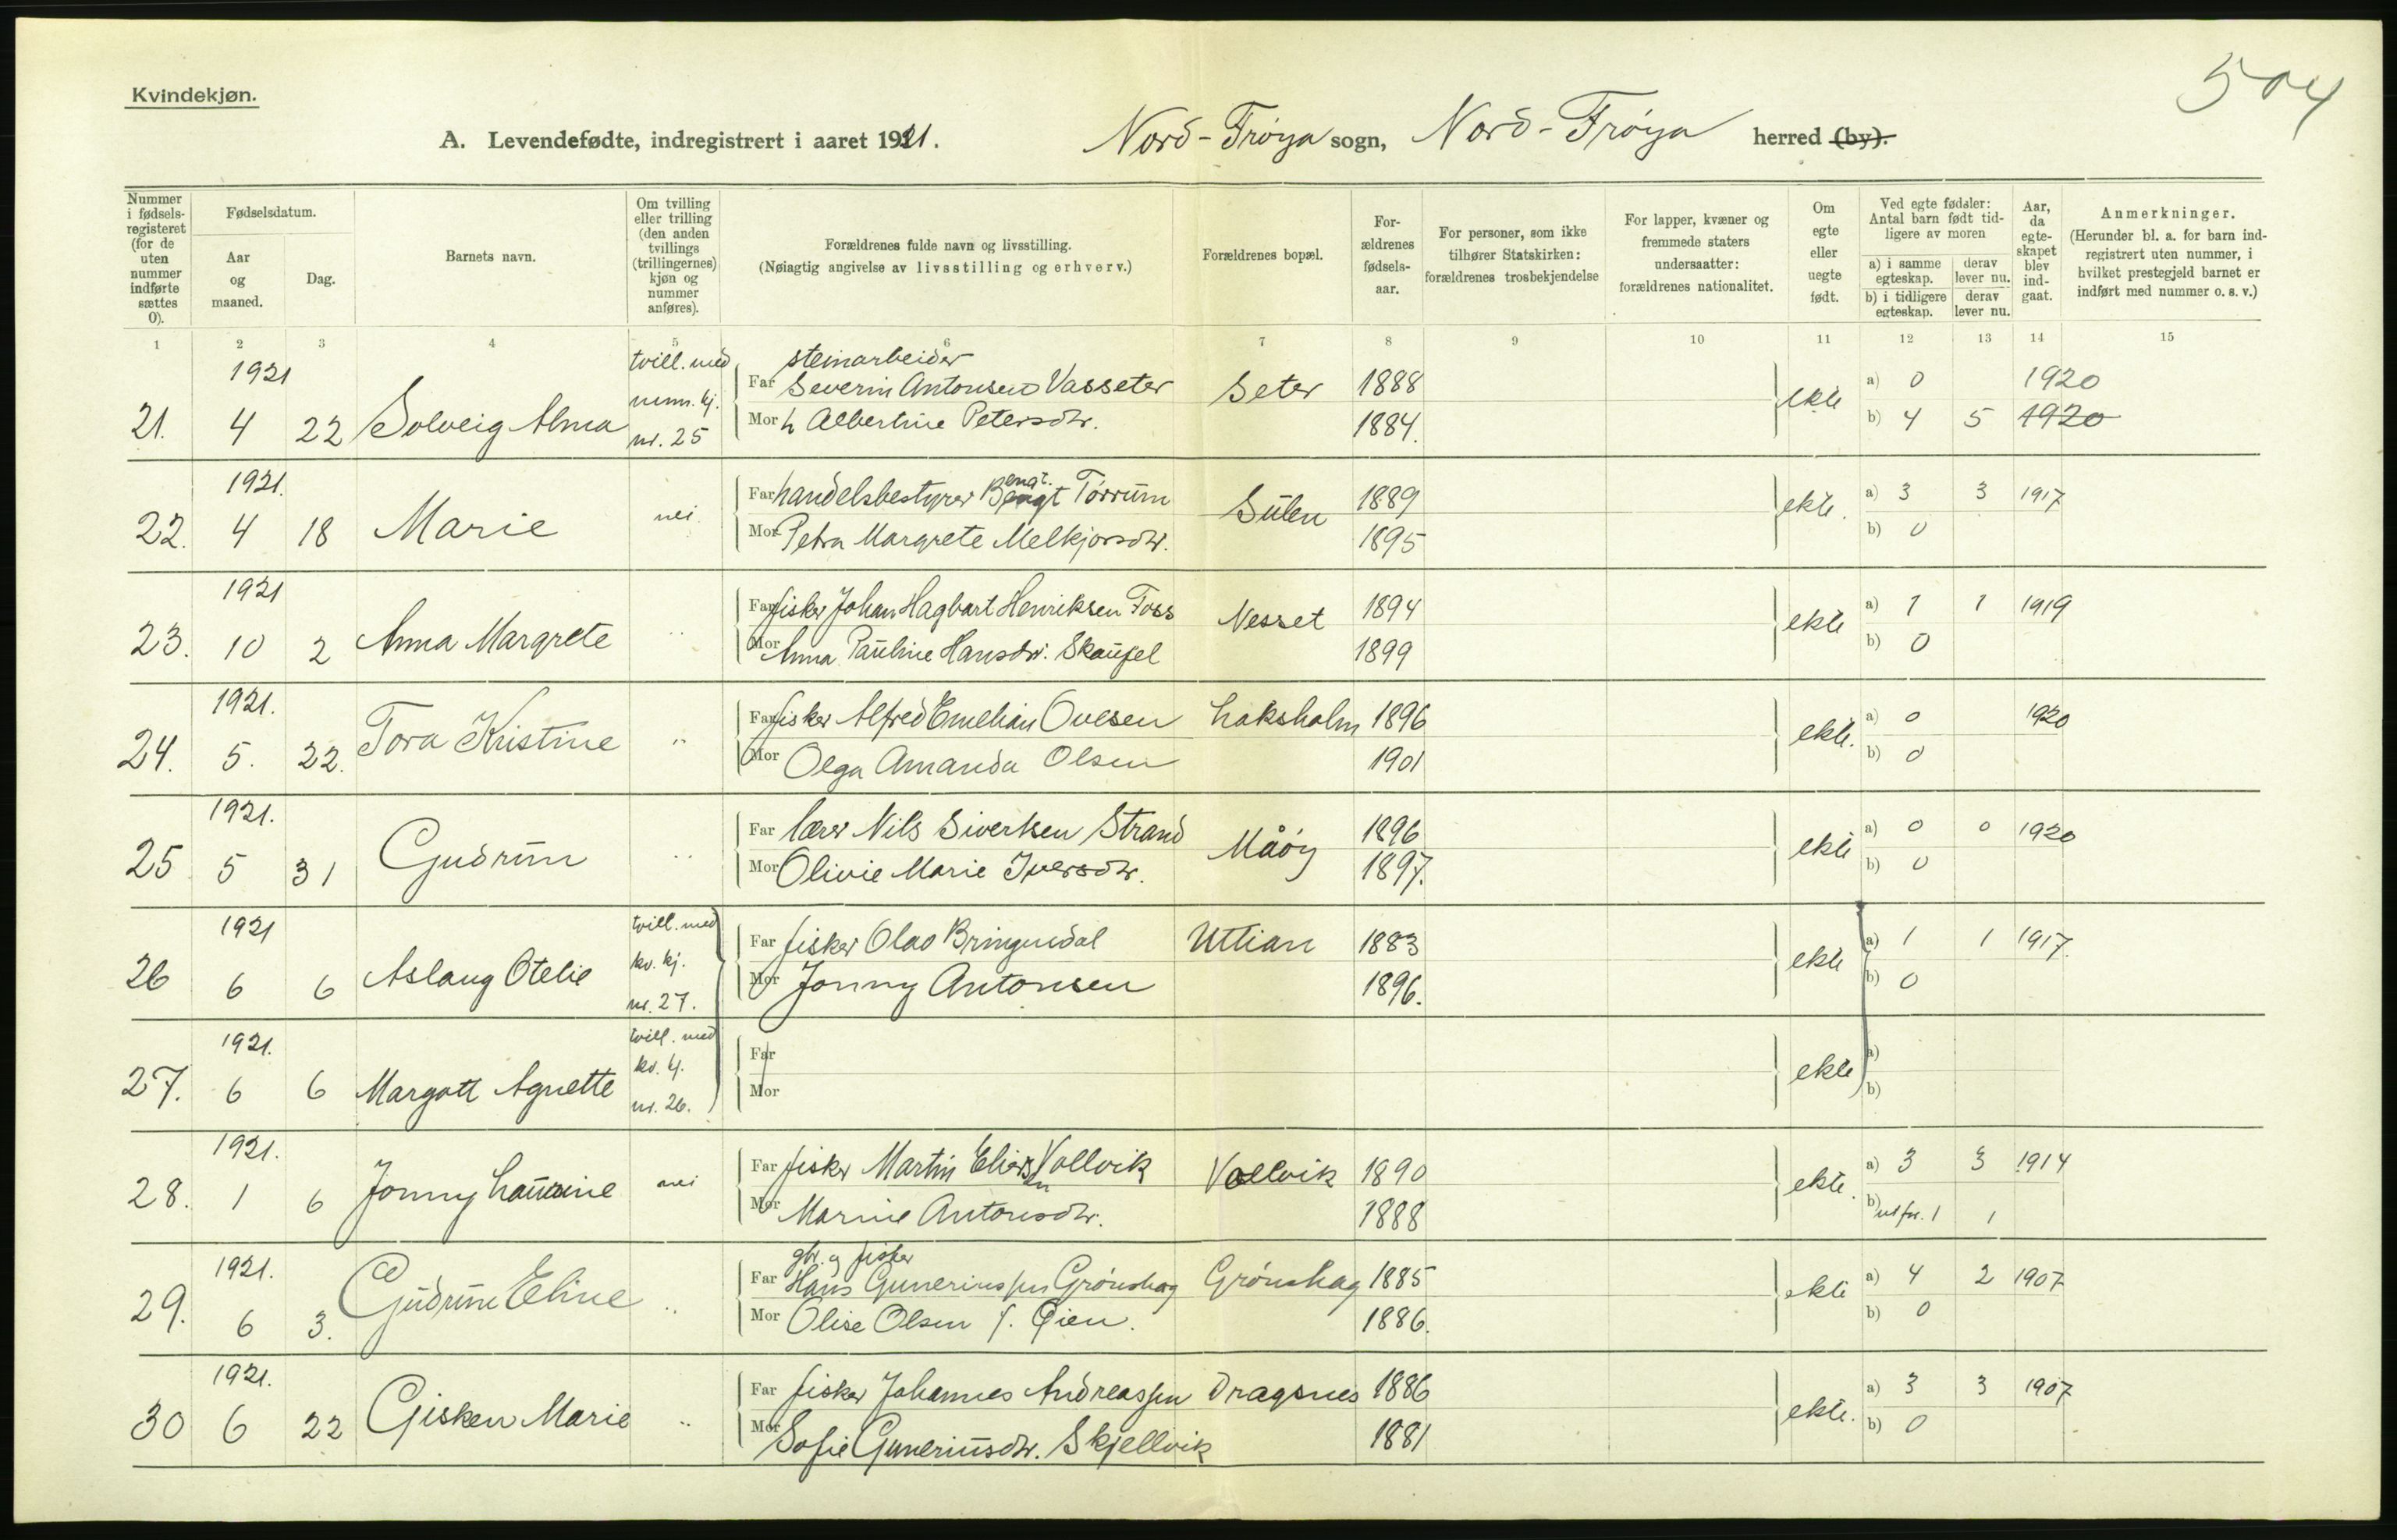 504
Kvindekjøn.
A. Levendefødte, indregistrert i aaret 1921. Nord-Frøya sogn, Nord-Frøya herred (by).
Nummer i fødsels-registeret (for de uten nummer indførte sættes 0).
Fødselsdatum.
Aar og maaned.
Dag.
Barnets navn.
Om tvilling eller trilling (den anden tvillings (trillingernes) kjøn og nummer anføres).
Forældrenes fulde navn og livsstilling.
(Nøiagtig angivelse av livsstilling og erhverv.)
Forældrenes bopæl.
For-ældrenes fødsels-aar.
For personer, som ikke tilhører Statskirken: forældrenes trosbekjendelse
For lapper, kvæner og fremmede staters undersaatter: forældrenes nationalitet.
Om egte eller uegte født.
Ved egte fødsler: Antal barn født tid-ligere av moren
a) i samme egteskap. derav lever nu.
b) i tidligere egteskap. derav lever nu.
Aar, da egte-skapet blev ind-gaat.
Anmerkninger.
(Herunder bl. a. for barn ind-registrert uten nummer, i hvilket prestegjeld barnet er indført med nummer o. s. v.)
1 2 3 4 5 6 7 8 9 10 11 12 13 14 15
1921 tvill. med steinarbeider
Far Severin Antonsen Vasseter Seter 1888 ekte a) 0 1920
21. 4 22 Solveig Alma mnn. kj. nr. 25 Mor h Albertine Petersdtr. 1884. b) 4 5 1920
1921. Far handelsbestyrer Bengt Bengt. Tørrum Sulen 1889 ekte. a) 3 3 1917
22. 4 18 Marie nei Mor Petra Margrete Melkjorsdtr. 1895 b) 0
1921 Far fisker Johan Hagbart Henriksen Foss Nesset 1894 ekte a) 1 1 1919
23. 10 2 Anna Margrete " Mor Anna Pauline Hansdtr. Skaufel 1899 b) 0
1921. Far fisker Alfred Emelian Ovesen Laksholm 1896 ekte. a) 0 1920
24. 5. 22. Tora Kristine " Mor Olga Amanda Olsen 1901 b) 0
1921. Far lærer Nils Sivertsen Strand Måøy 1896 ekte a) 0 0 1920
25 5 31 Gudrun " Mor Olivie Marie Iversdtr. 1897. b) 0
1921 tvill. med Far fisker Olao Bringendal Uttian 1883 ekte a) 1 1 1917.
26 6 6 Aslaug Otelie kv. kj. nr. 27. Mor Jonny Antonsen 1896. b) 0
1921. tvill. med Far ekte a)
27. 6 6 Margott Agnette kv. kj. nr. 26. Mor b)
1921. Far fisker Martin Eliersen Vollvik Vollvik 1890 ekte. a) 3 3 1914
28. 1 6 Jonny Laurine nei Mor Marine Antonsdtr. 1888 b) 1 1
1921. gbr. og fisker
Far Hans Guneriussen Grønshag Grønshag 1885 ekte a) 4 2 1907
29. 6 3. Gudrun Eline " Mor Olise Olsen f. Øien. 1886. b) 0
1921. Far fisker Johannes Andreassen Dragsnes 1886 ekte. a) 3 3 1907
30 6 22 Gisken Marie " Mor Sofie Guneriusdtr. Skjellvik 1881 b) 0